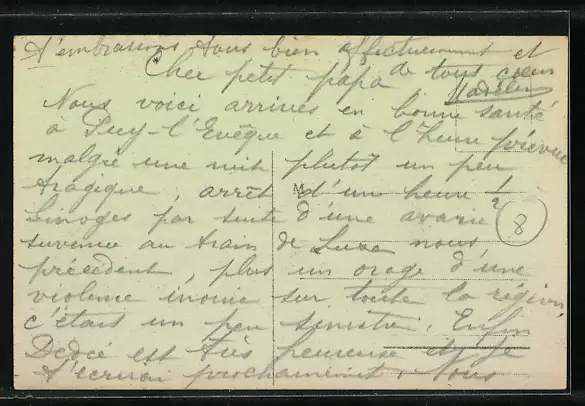 t'embrassons tous bien affectueusement et
de tout coeur
Madeleine
Cher petit papa
Nous voici arrivés en bonne santé
à Puy-l'Evêque et à l'heure prévue
malgré une nuit plutôt un peu
tragique, arrêt d'un heure 1/2
Limoges par suite d'une avarie
survenue au train de Luxe nous
précédent, plus un orage d'une
violence inouïe sur toute la région,
c'était un peu sinistre. Enfin
Dédée est très heureuse et je
t'écrirai prochainement. Nous
8